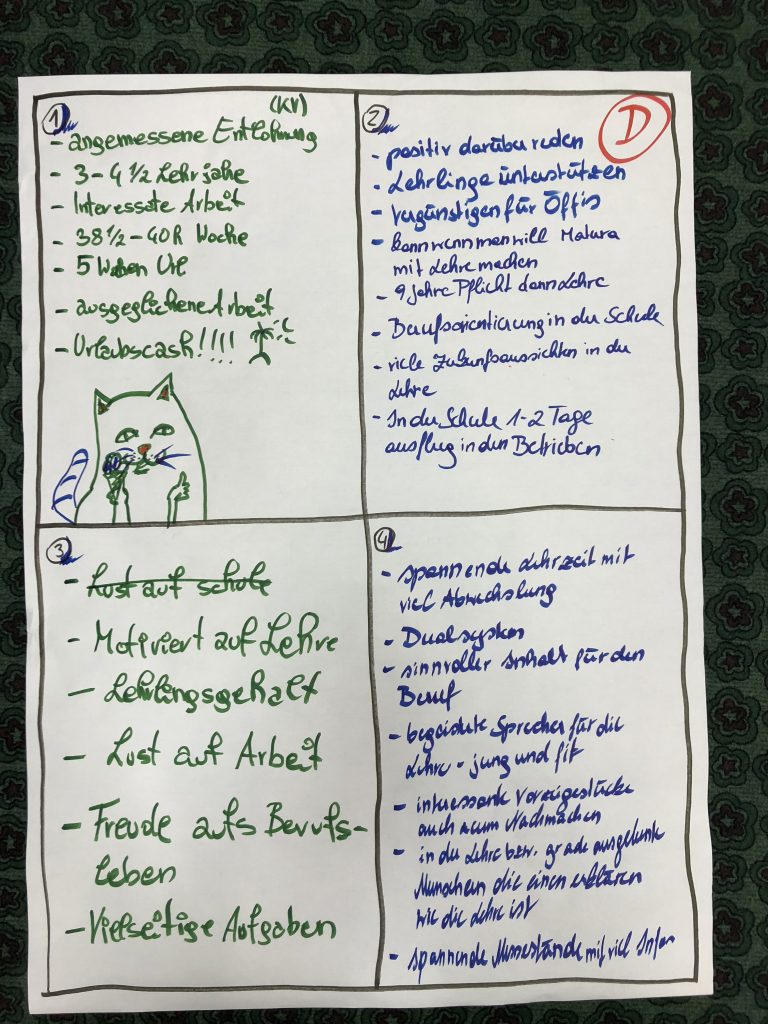 1
(KV)
- angemessene Entlohnung
- 3-4 1/2 Lehrjahre
- Interessate Arbeit
- 38 1/2 - 40h Woche
- 5 Wochen Url
- ausgeglichene Arbeit
- Urlaubscash!!!!
2
D
- positiv darüber reden
- Lehrlinge unterstützen
- Vergünstigen für Öffis
- Kann wenn man will Matura
mit Lehre machen
- 9 Jahre Pflicht dann Lehre
- Berufsorientierung in der Schule
- viele Zukunfsaussichten in der
Lehre
- In der Schule 1-2 Tage
ausflug in den Betrieben
3
- Lust auf schule
- Motiviert auf Lehre
- Lehrlingsgehalt
- Lust auf Arbeit
- Freude aufs Berufs-
leben
- Vielseitige Aufgaben
4
- spannende Lehrzeit mit
viel Abwechslung
- Dualsystem
- sinnvoller Inhalt für den
Beruf
- begeisterte Sprecher für die
Lehre - jung und fit
- interessante Vorzeigestücke
auch zum Nachmachen
- in der Lehre bzw. grade ausgelernte
Menschen die einen erklären
wie die Lehre ist
- spannende Messestände mit viel Infos